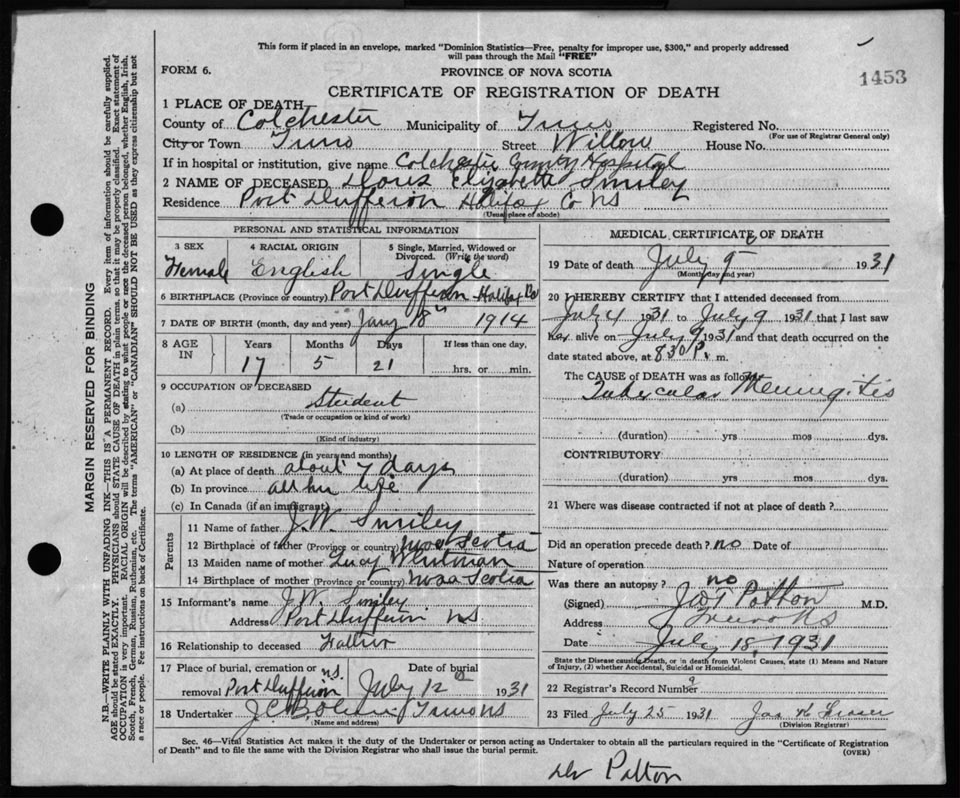 This form if placed in an envelope, marked "Dominion Statistics—Free, penalty for improper use, $300," and properly addressed
will pass through the Mail "FREE"
FORM 6.
PROVINCE OF NOVA SCOTIA
1453
CERTIFICATE OF REGISTRATION OF DEATH
1 PLACE OF DEATH
County of Colchester Municipality of Truro Registered No.
(For use of Registrar General only)
City or Town Truro Street Willow House No.
If in hospital or institution, give name Colchester County Hospital
2 NAME OF DECEASED Doris Elizabeth Smiley
Residence Port Dufferin Halifax Co NS
(Usual place of abode)
PERSONAL AND STATISTICAL INFORMATION
3 SEX 4 RACIAL ORIGIN 5 Single, Married, Widowed or
Divorced. (Write the word)
Female English Single
6 BIRTHPLACE (Province or country) Port Dufferin Halifax Co
7 DATE OF BIRTH (month, day and year) Jany 18th 1914
8 AGE IN Years Months Days If less than one day,
17 5 21 hrs. or min.
9 OCCUPATION OF DECEASED
(a) Student
(Trade or occupation or kind of work)
(b)
(Kind of industry)
10 LENGTH OF RESIDENCE (in years and months)
(a) At place of death about 7 days
(b) In province all her life
(c) In Canada (if an immigrant)
Parents
11 Name of father J.W. Smiley
12 Birthplace of father (Province or country) Nova Scotia
13 Maiden name of mother Lucy Whitman
14 Birthplace of mother (Province or country) Nova Scotia
15 Informant's name J.W. Smiley
Address Port Dufferin NS
16 Relationship to deceased Father
17 Place of burial, cremation or Date of burial
removal Port Dufferin N.S. July 12th 1931
18 Undertaker J.C.B. Truro NS
(Name and address)
MEDICAL CERTIFICATE OF DEATH
19 Date of death July 9 1931
(Month, day and year)
20 I HEREBY CERTIFY that I attended deceased from
July 4 1931 to July 9 1931 that I last saw
her alive on July 9 1931 and that death occurred on the
date stated above, at 8.30 P. m.
The CAUSE OF DEATH was as follows:
Tubercular Meningitis
(duration) yrs mos dys.
CONTRIBUTORY
(duration) yrs. mos. dys.
21 Where was disease contracted if not at place of death?
Did an operation precede death? no Date of
Nature of operation
Was there an autopsy? no
(Signed) Patton M.D.
Address Truro NS
Date July 18, 1931
State the Disease causing Death, or in death from Violent Causes, state (1) Means and Nature
of Injury, (2) whether Accidental, Suicidal or Homicidal.
22 Registrar's Record Number 9
23 Filed July 25 1931 Jas Fraser
(Division Registrar)
Sec. 46—Vital Statistics Act makes it the duty of the Undertaker or person acting as Undertaker to obtain all the particulars required in the "Certificate of Registration
of Death" and to file the same with the Division Registrar who shall issue the burial permit. (OVER)
Dr Patton
MARGIN RESERVED FOR BINDING
N.B.—WRITE PLAINLY WITH UNFADING INK—THIS IS A PERMANENT RECORD. Every item of information should be carefully supplied.
AGE should be stated EXACTLY. PHYSICIANS should STATE CAUSE OF DEATH in plain terms, so that it may be properly classified. Exact statement of
OCCUPATION is very important. RACIAL ORIGIN will be described by stating to what people or race the deceased person belonged, whether English, Irish,
Scotch, French, German, Russian, Ruthenian, etc. The terms "AMERICAN" or "CANADIAN" SHOULD NOT BE USED as they express citizenship but not
a race or people. Fee instructions on back of Certificate.